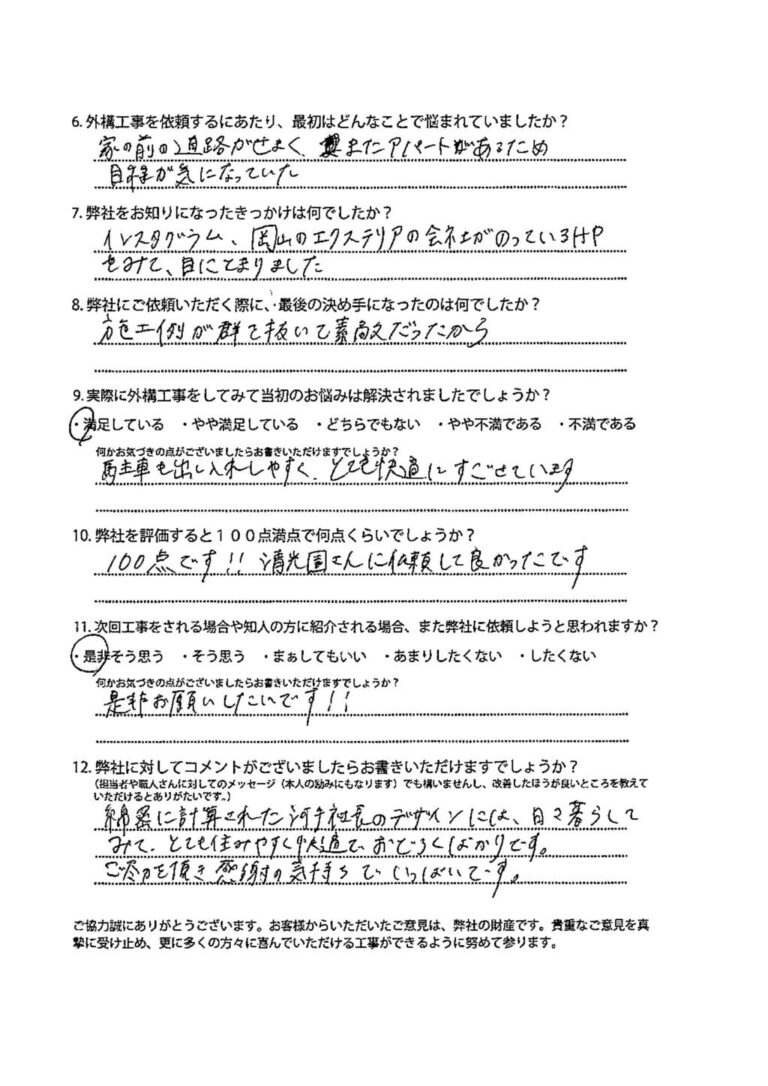 6. 外構工事を依頼するにあたり、最初はどんなことで悩まれていましたか？
家の前の道路がせまく、またアパートがあるため
目線が気になっていた
7. 弊社をお知りになったきっかけは何でしたか？
インスタグラム、岡山のエクステリアの会社がのっているHP
をみて、目にとまりました
8. 弊社にご依頼いただく際に、最後の決め手になったのは何でしたか？
施工例が群を抜いて素敵だったから
9. 実際に外構工事をしてみて当初のお悩みは解決されましたでしょうか？
・満足している ・やや満足している ・どちらでもない ・やや不満である ・不満である
何かお気づきの点がございましたらお書きいただけますでしょうか？
駐車も出し入れしやすく、とても快適にすごせています
10. 弊社を評価すると１００点満点で何点くらいでしょうか？
100点です!! 清光園さんに依頼して良かったです
11. 次回工事をされる場合や知人の方に紹介される場合、また弊社に依頼しようと思われますか？
・是非そう思う ・そう思う ・まぁしてもいい ・あまりしたくない ・したくない
何かお気づきの点がございましたらお書きいただけますでしょうか？
是非お願いしたいです!!
12. 弊社に対してコメントがございましたらお書きいただけますでしょうか？
（担当者や職人さんに対してのメッセージ（本人の励みにもなります）でも構いませんし、改善したほうが良いところを教えて
いただけるとありがたいです。）
綿密に計算された河手社長のデザインには、日々暮らして
みて、とても住みやすく快適でおどろくばかりです。
ご尽力を頂き感謝の気持ちでいっぱいです。
ご協力誠にありがとうございます。お客様からいただいたご意見は、弊社の財産です。貴重なご意見を真
摯に受け止め、更に多くの方々に喜んでいただける工事ができるように努めて参ります。